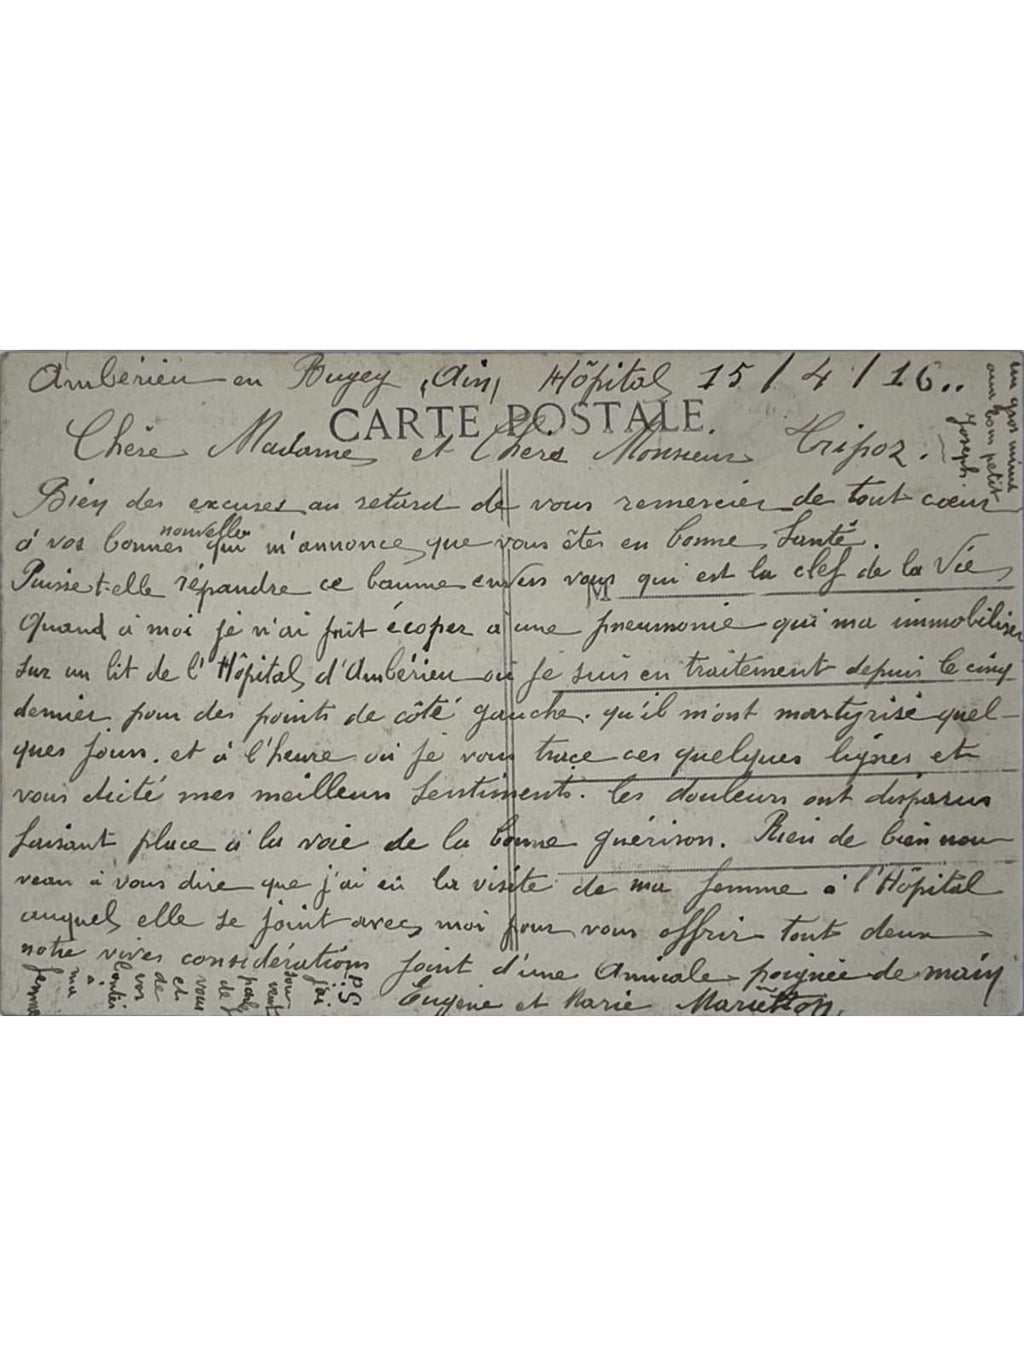 Ambérieu en Bugey (Ain) Hôpital 15/4/16..
CARTE POSTALE.
Chère Madame et Chère Monsieur Tripoz.
Bien des excuses au retard de vous remercier de tout cœur
à vos bonnes nouvelles qui m'annonce que vous êtes en bonne Santé.
Puisse-t-elle répandre ce baume envers vous qui est la clef de la Vie
Quand à moi je n'ai fait écoper d'une pneumonie qui ma immobiliser
sur un lit de l'Hôpital d'Ambérieu où je suis en traitement depuis le cinq
dernier pour des points de côté gauche. qu'il m'ont martyrisé quel-
ques jours. et à l'heure où je vous trace ces quelques lignes et
vous dicté mes meilleurs Sentiments. les douleurs ont disparus
faisant place à la voie de la bonne guérison. Rien de bien nou
veau à vous dire que j'ai eû la visite de ma femme à l'Hôpital
auquel elle se joint avec moi pour vous offrir tout deux
notre vives considérations joint d'une Amicale poignée de main
Eugène et Marie Mariétton.
P.S
j'ai
souvent
parlé de
vous
et
de
vos
bontés
à
ma
femme
un gros mimi
au bon petit
Joseph.